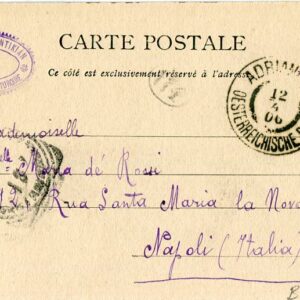 CARTE POSTALE
Ce côté est exclusivement réservé à l'adresse
ADRIAN
12
4
06
OESTERREICHISCHE
ademoiselle
elle Maria de' Rossi
21, Rua Santa Maria la Nova
Napoli (Italia)